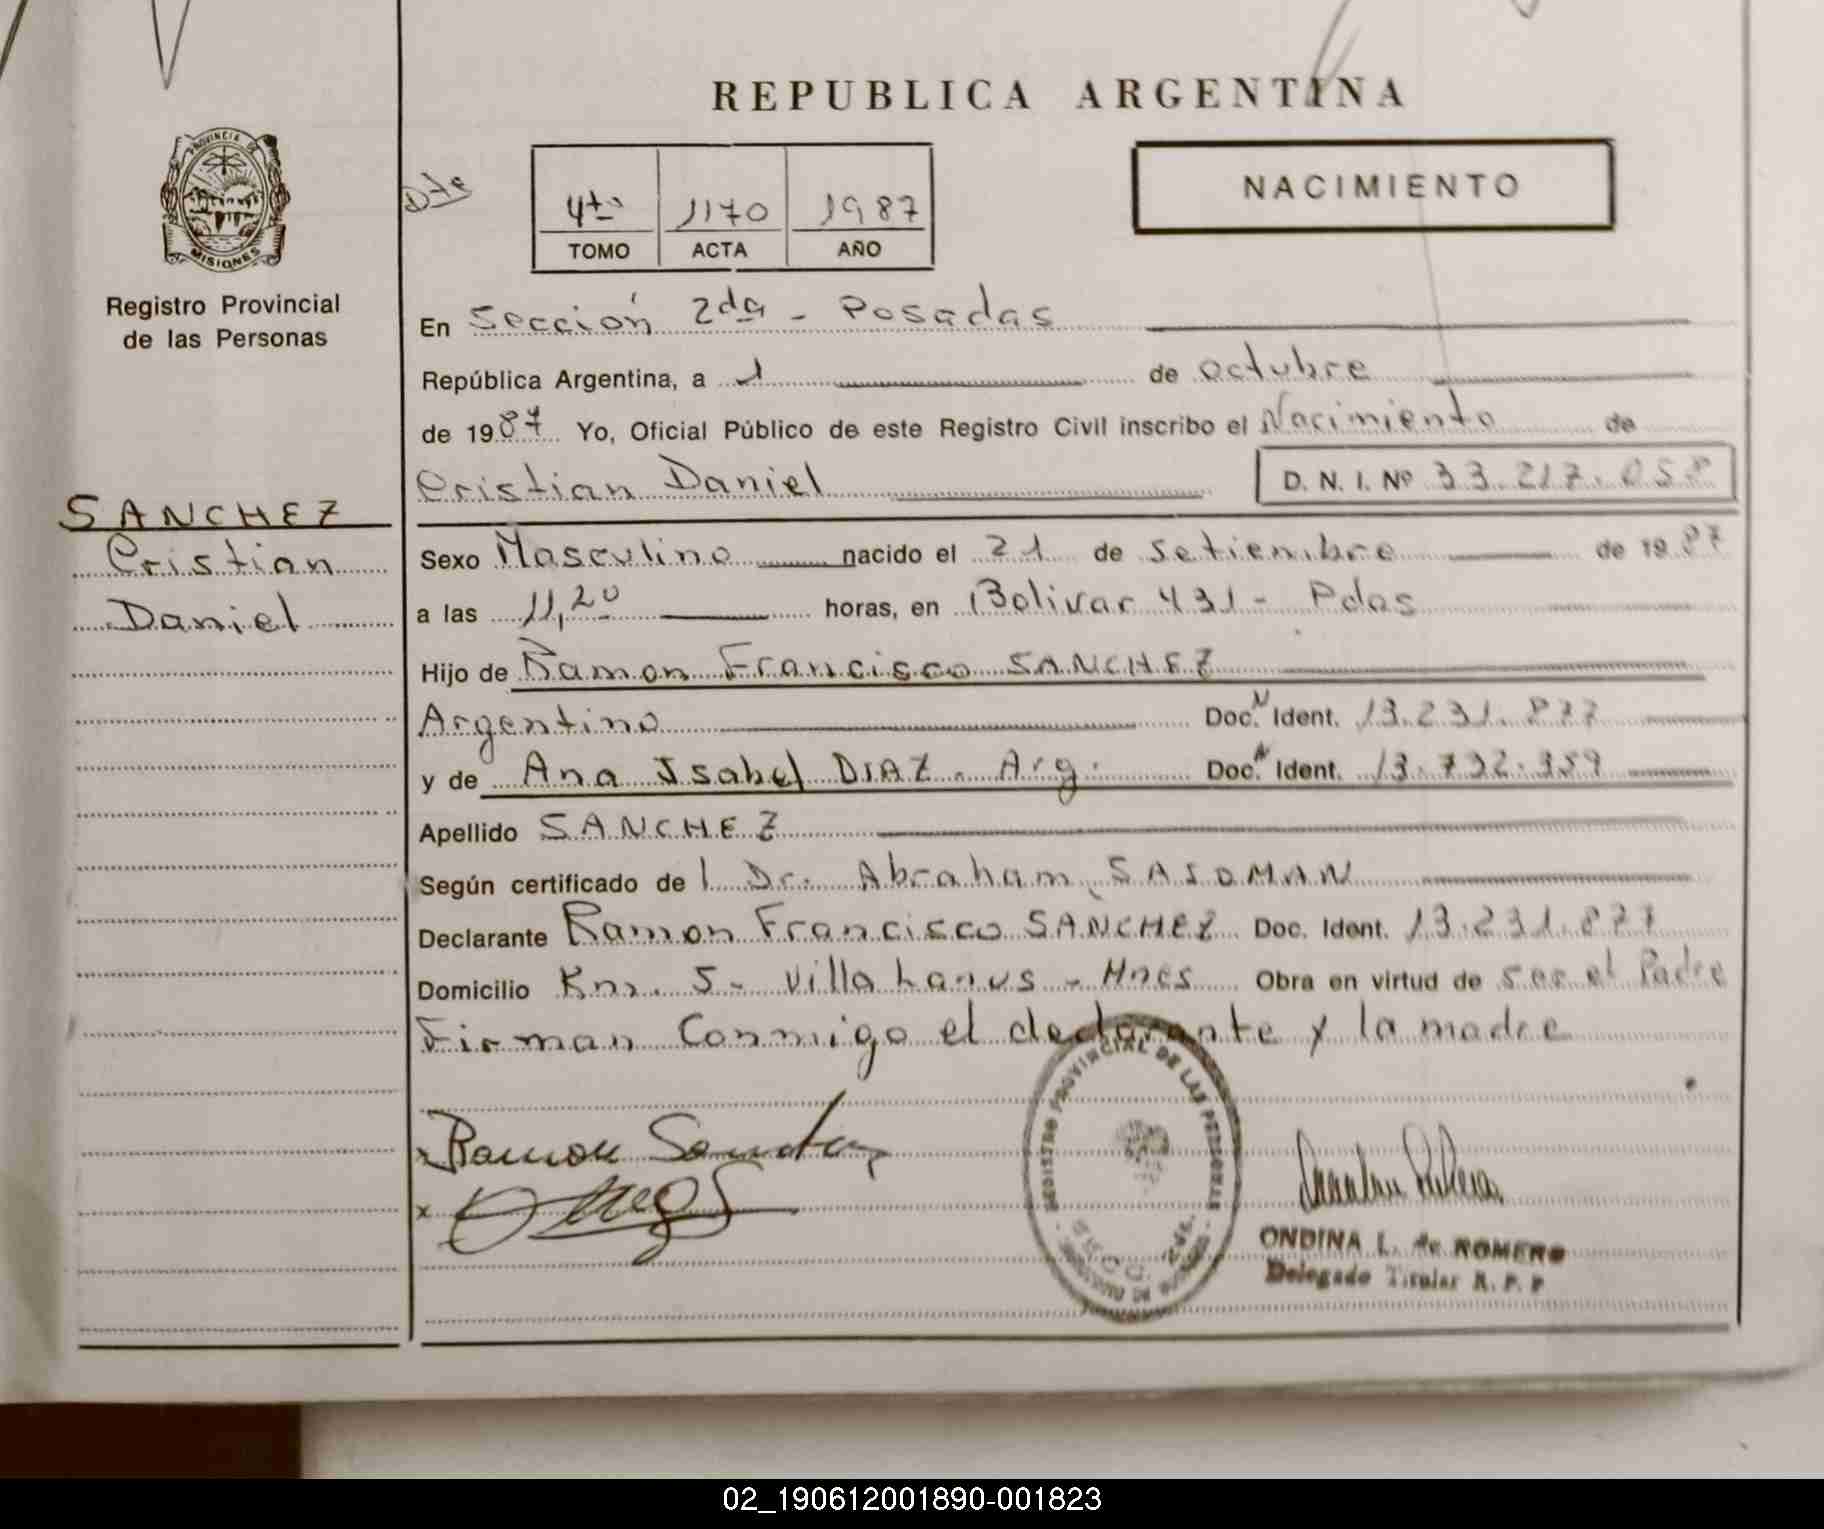 REPUBLICA ARGENTINA
PROVINCIA DE MISIONES
Registro Provincial
de las Personas
Dte
4to 1170 1987
TOMO ACTA AÑO
NACIMIENTO
En Sección 2da - Posadas
República Argentina, a 1 de octubre
de 1987 Yo, Oficial Público de este Registro Civil inscribo el Nacimiento de
Cristian Daniel D. N. I. Nº 33.217.058
SANCHEZ
Cristian
Daniel
Sexo Masculino nacido el 21 de setiembre de 1987
a las 11,20 horas, en Bolivar 431 - Pdas
Hijo de Ramon Francisco SANCHEZ
Argentino Doc. N Ident. 13.231.877
y de Ana Isabel DIAZ - Arg. Doc. N Ident. 13.732.359
Apellido SANCHEZ
Según certificado del Dr. Abraham SASOMAN
Declarante Ramon Francisco SANCHEZ Doc. Ident. 13.231.877
Domicilio Km. 5 - Villa Lanus - Mnes Obra en virtud de ser el Padre
Firman Conmigo el declarante y la madre
x Ramon Sanchez
x
REGISTRO PROVINCIAL DE LAS PERSONAS
ONDINA L. de ROMERO
Delegado Titular R. P. P
02_190612001890-001823